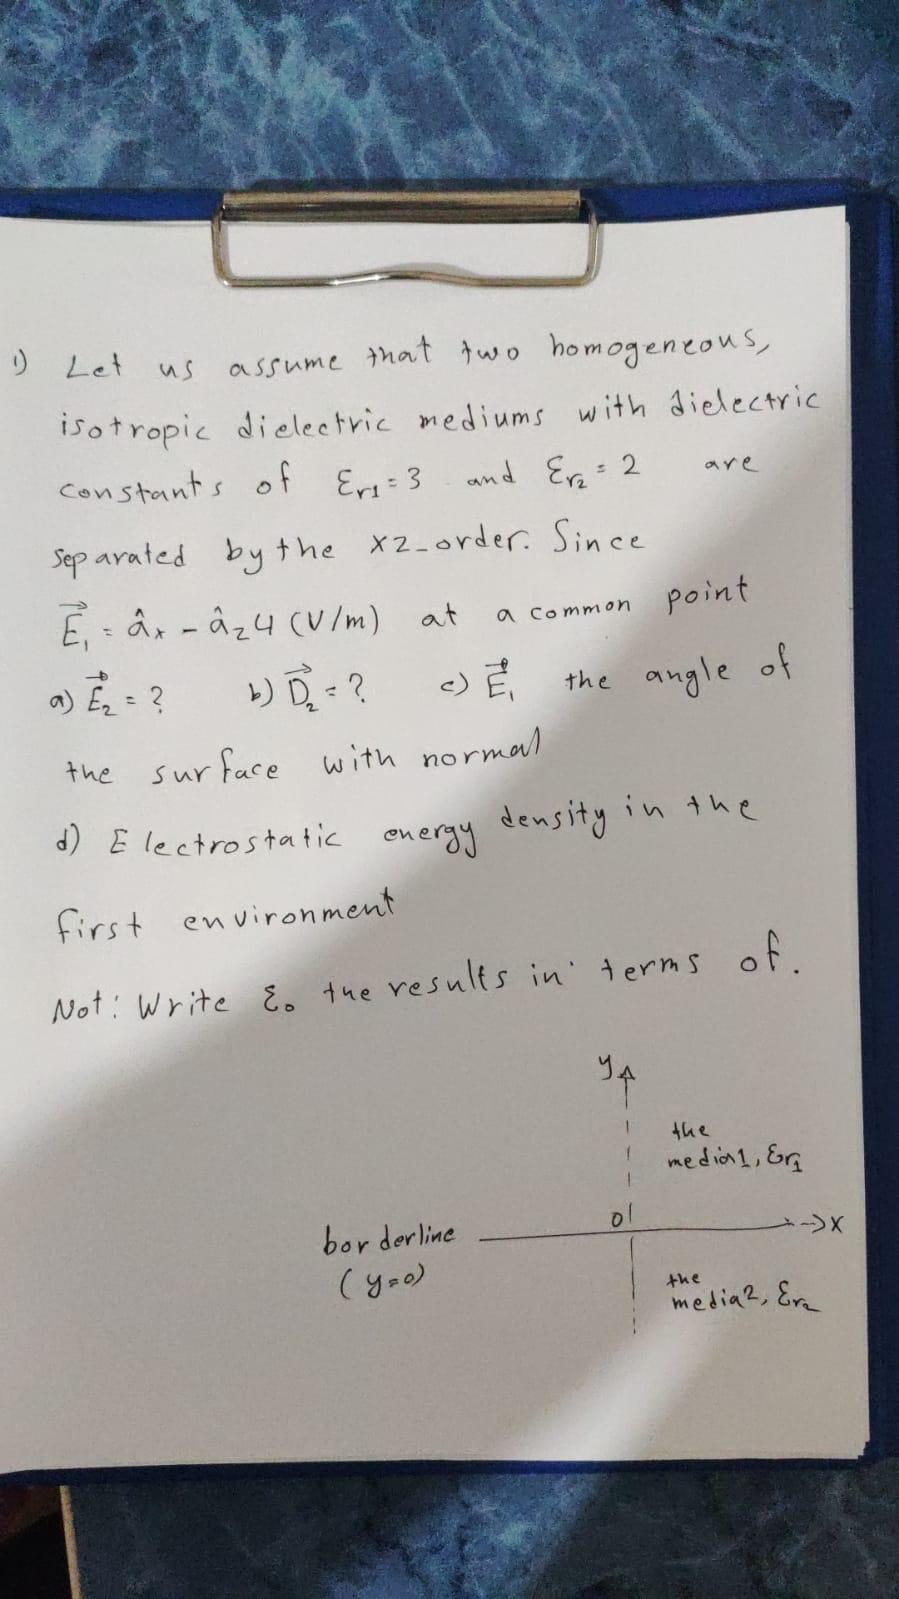 1) Let us assume that two homogeneous,
isotropic dielectric mediums with dielectric
constants of εr1 = 3 and εr2 = 2 are
separated by the xz-order. Since
E⃗₁ = âx - âz4 (V/m) at a common point
a) E⃗₂ = ? b) D⃗₂ = ? c) E⃗₁ the angle of
the surface with normal
d) Electrostatic energy density in the
first environment
Not: Write ε₀ the results in terms of.
y
the
media1, εr1
0
x
borderline
(y=0)
the
media2, εr2